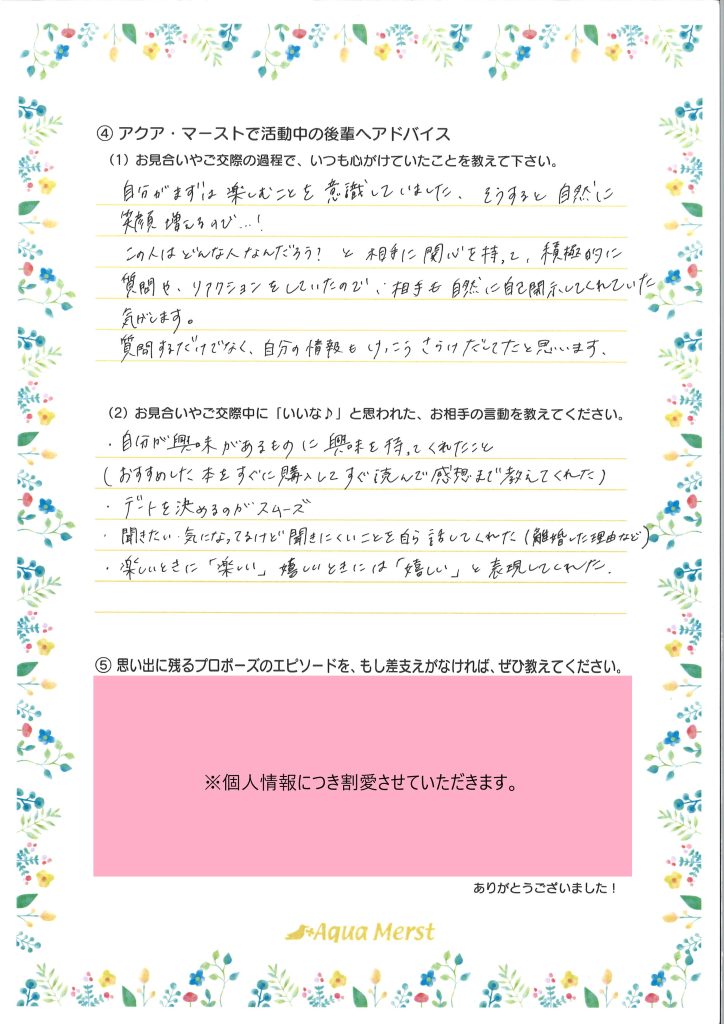 ④ アクア・マーストで活動中の後輩へアドバイス
（1）お見合いやご交際の過程で、いつも心がけていたことを教えて下さい。
自分がまずは楽しむことを意識していました、そうすると自然に
笑顔増えるので…！
この人はどんな人なんだろう？と相手に関心を持って、積極的に
質問や、リアクションをしていたので、相手も自然に自己開示してくれていた
気がします。
質問するだけでなく、自分の情報もけっこうさらけだしてたと思います、
（2）お見合いやご交際中に「いいな♪」と思われた、お相手の言動を教えてください。
・自分が興味があるものに興味を持ってくれたこと
（おすすめした本をすぐに購入してすぐ読んで感想まで教えてくれた）
・デートを決めるのがスムーズ
・聞きたい・気になってるけど聞きにくいことを自ら話してくれた（離婚した理由など）
・楽しいときに「楽しい」嬉しいときには「嬉しい」と表現してくれた．
⑤ 思い出に残るプロポーズのエピソードを、もし差支えがなければ、ぜひ教えてください。
※個人情報につき割愛させていただきます。
ありがとうございました！
Aqua Merst